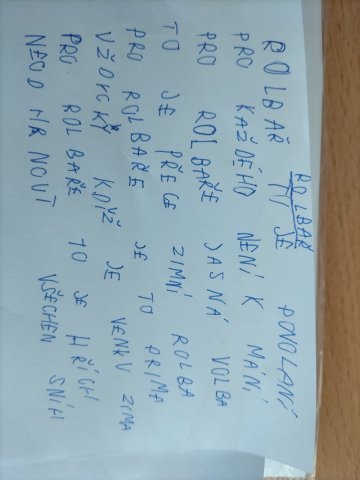 ROLBAŘ
ROLBAŘ JE POVOLANÍ
PRO KAŽDÉHO NENÍ K MÁNÍ
PRO ROLBAŘE JASNÁ VOLBA
TO JE PŘECE ZIMNÍ ROLBA
PRO ROLBAŘE JE TO PRIMA
VŽDYCKY KDYŽ JE VENKU ZIMA
PRO ROLBAŘE TO JE HŘÍCH
NEODHRNOUT VŠECHEN SNÍH